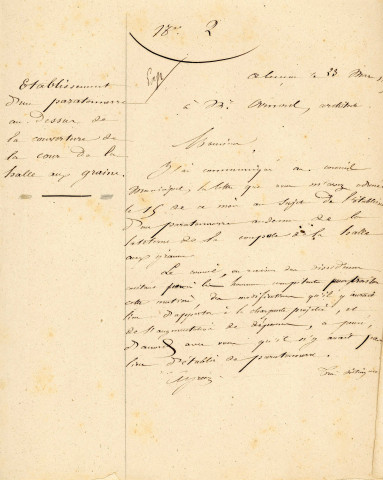 2
Etablissement
d'un paratonnerre
au dessus de
la couverture de
la cour de la
halle aux grains.
Alençon le 23
à Mr architecte
Monsieur,
J'ai communiqué au conseil
Municipal, la lettre que vous m'avez
le 15 de ce mois au sujet de
d'un paratonnerre au dessus de la
lanterne de la coupole de la halle
aux grains
Le conseil, en raison du
par des hommes compétents
cette matière, des modifications qu'il y aurait
lieu d'apporter à la charpente projetée, et
de l'augmentation de dépense, a pensé,
d'accord avec vous qu'il n'y avait pas
lieu d'établir de paratonnerre.
Agréez